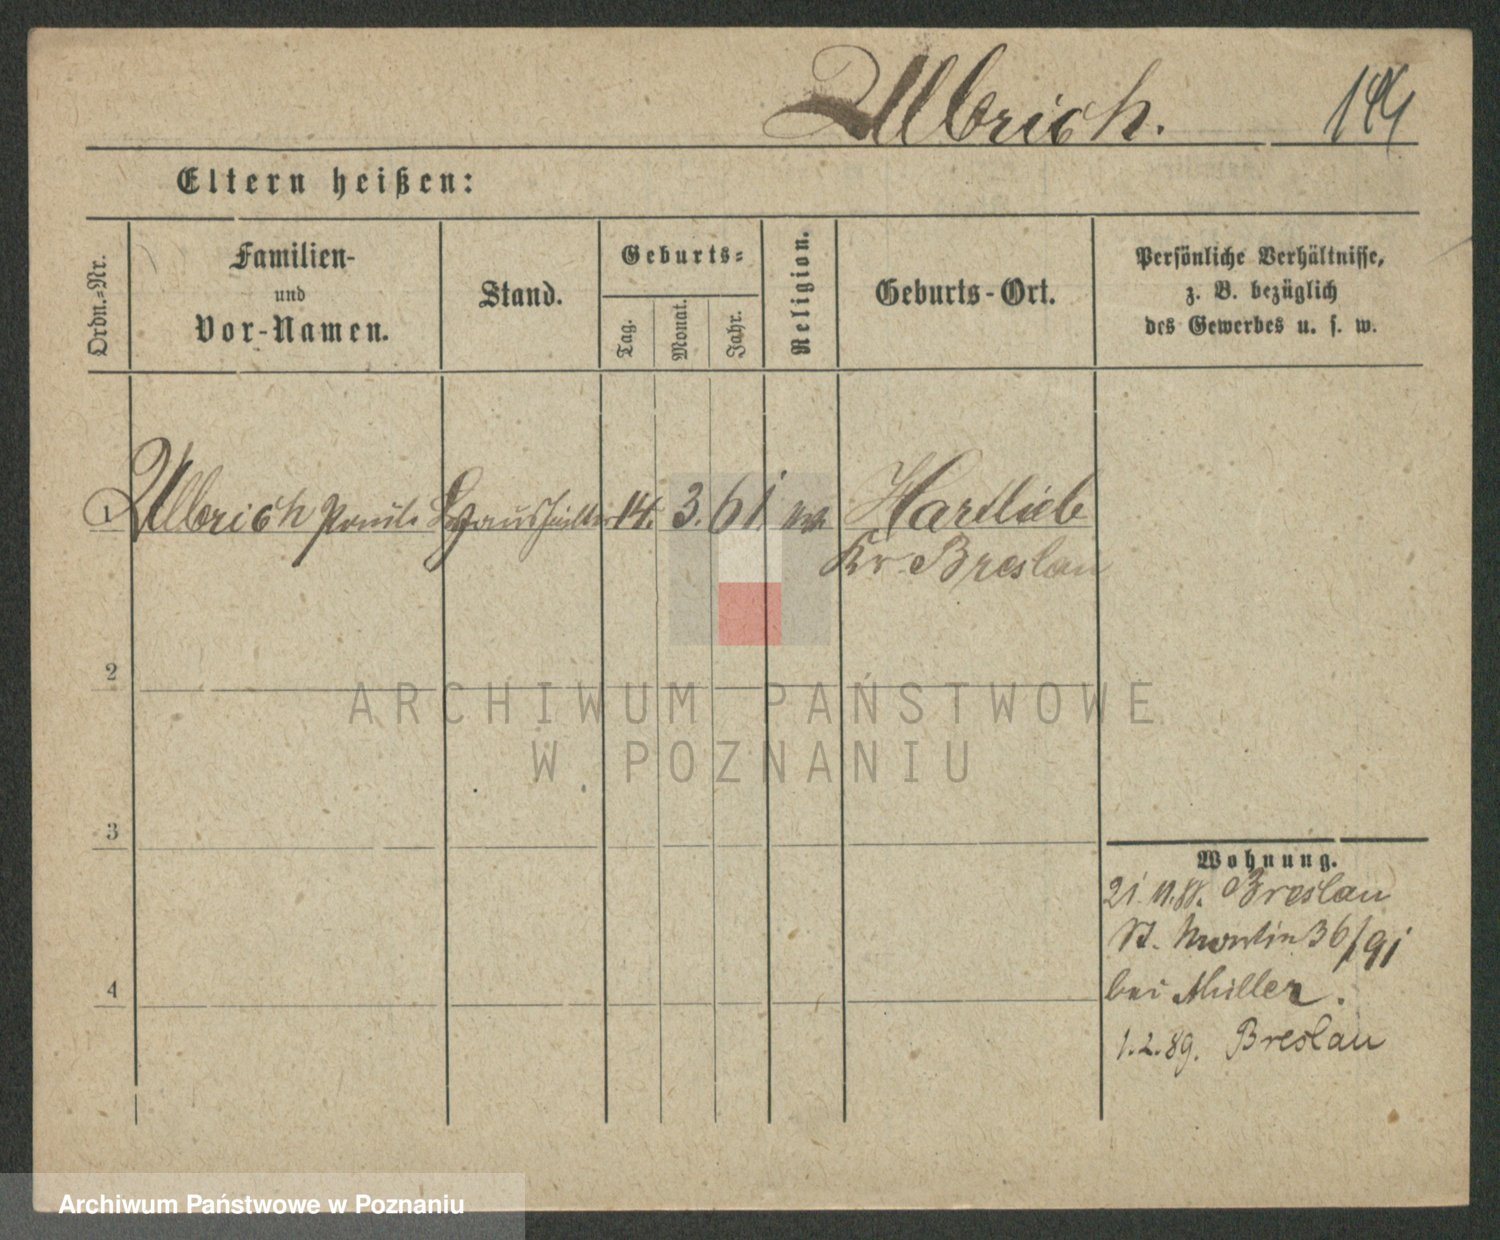 Ulbrich.
Eltern heißen:
Ordn.-Nr.
Familien-
und
Vor-Namen.
Stand.
Geburts-
Tag.
Monat.
Jahr.
Religion.
Geburts-Ort.
Persönliche Verhältnisse,
z. B. bezüglich
des Gewerbes u. s. w.
1 Ulbrich Haushälter 14. 3. 61 Hartlieb
Kr. Breslau
2
ARCHIWUM PAŃSTWOWE
W POZNANIU
3
Wohnung.
21. 11. 88. Breslau
St. Martin 36/91
bei Müller.
4
1. 2. 89. Breslau
Archiwum Państwowe w Poznaniu